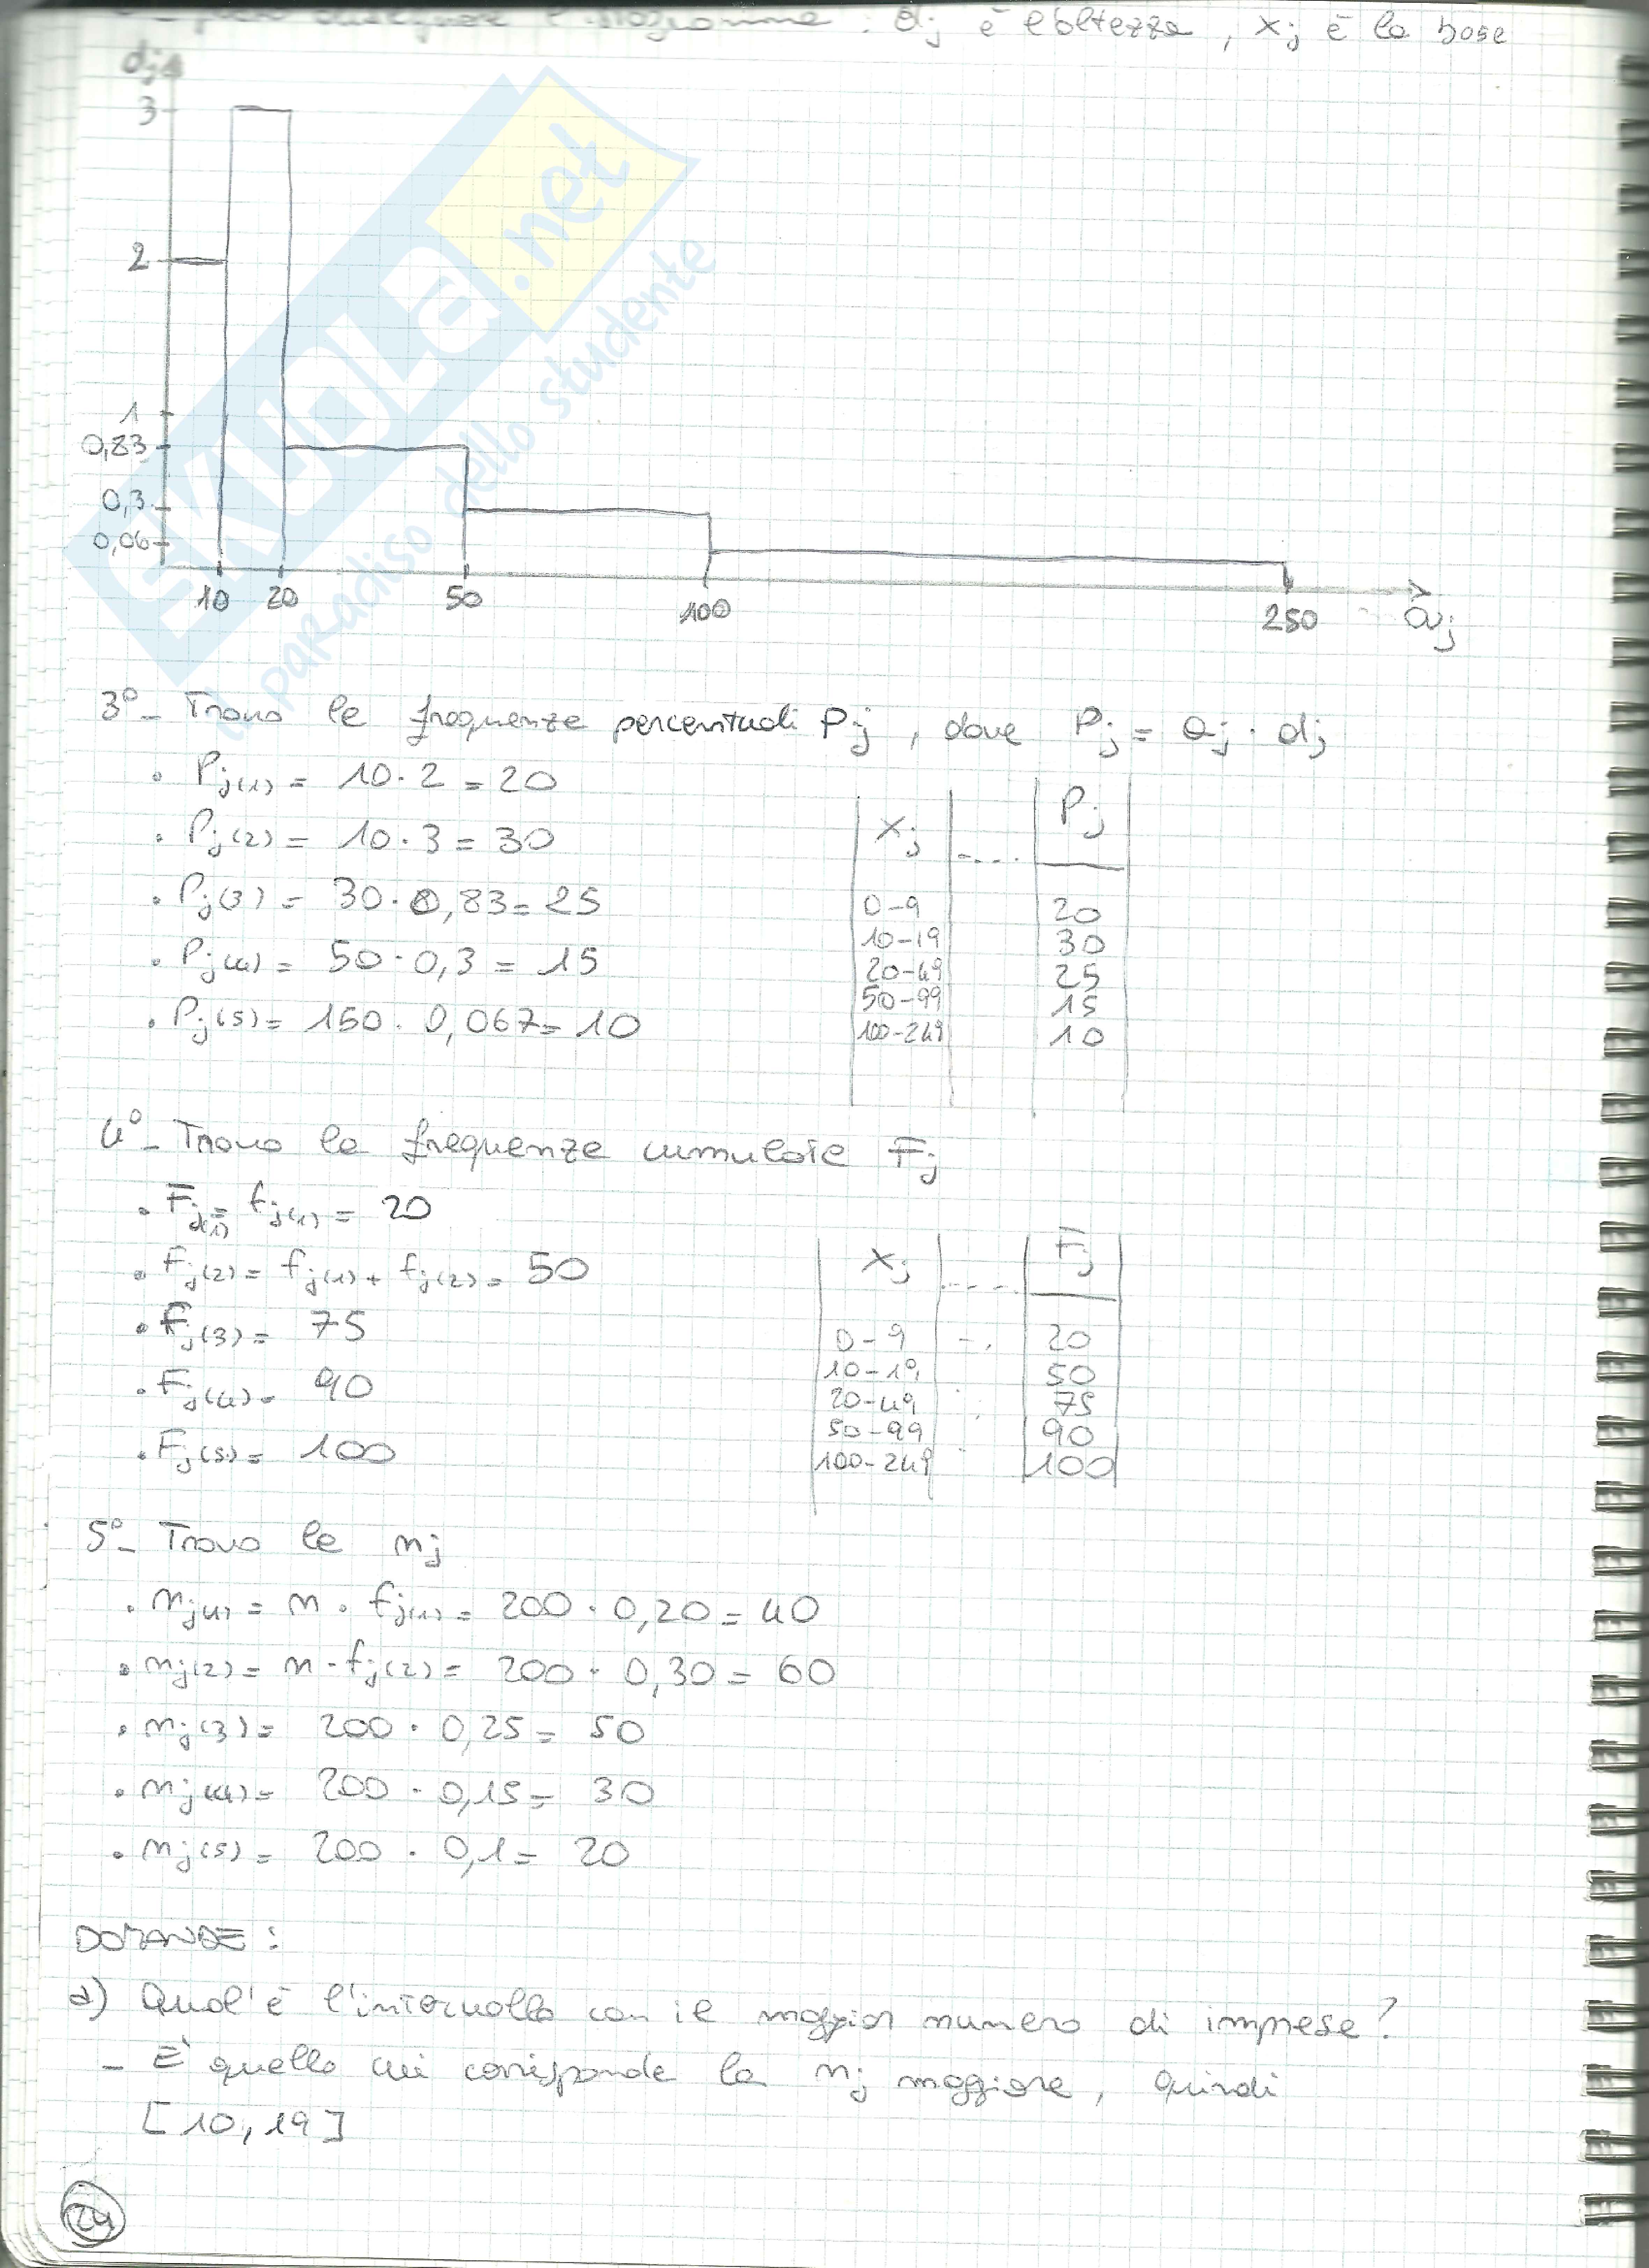 è l'altezza, xj è la base
dj
3
2
1
0,83
0,3
0,06
10 20 50 100 250 aj
SKUOLA.net
il paradiso dello studente
3°- Trovo le frequenze percentuali Pj, dove Pj = aj · dj
• Pj(1) = 10 · 2 = 20
• Pj(2) = 10 · 3 = 30
• Pj(3) = 30 · 0,83 = 25
• Pj(4) = 50 · 0,3 = 15
• Pj(5) = 150 · 0,067 = 10
xj .... Pj
0-9 20
10-19 30
20-49 25
50-99 15
100-249 10
4°- Trovo le frequenze cumulate Fj
• Fj(1) = fj(1) = 20
• Fj(2) = fj(1) + fj(2) = 50
• Fj(3) = 75
• Fj(4) = 90
• Fj(5) = 100
xj .... Fj
0-9 20
10-19 50
20-49 75
50-99 90
100-249 100
5°- Trovo le nj
• nj(1) = n · fj(1) = 200 · 0,20 = 40
• nj(2) = n · fj(2) = 200 · 0,30 = 60
• nj(3) = 200 · 0,25 = 50
• nj(4) = 200 · 0,15 = 30
• nj(5) = 200 · 0,1 = 20
DOMANDE:
a) Qual'è l'intervallo con il maggior numero di imprese?
- È quello cui corrisponde la nj maggiore, quindi
[10,19]
24